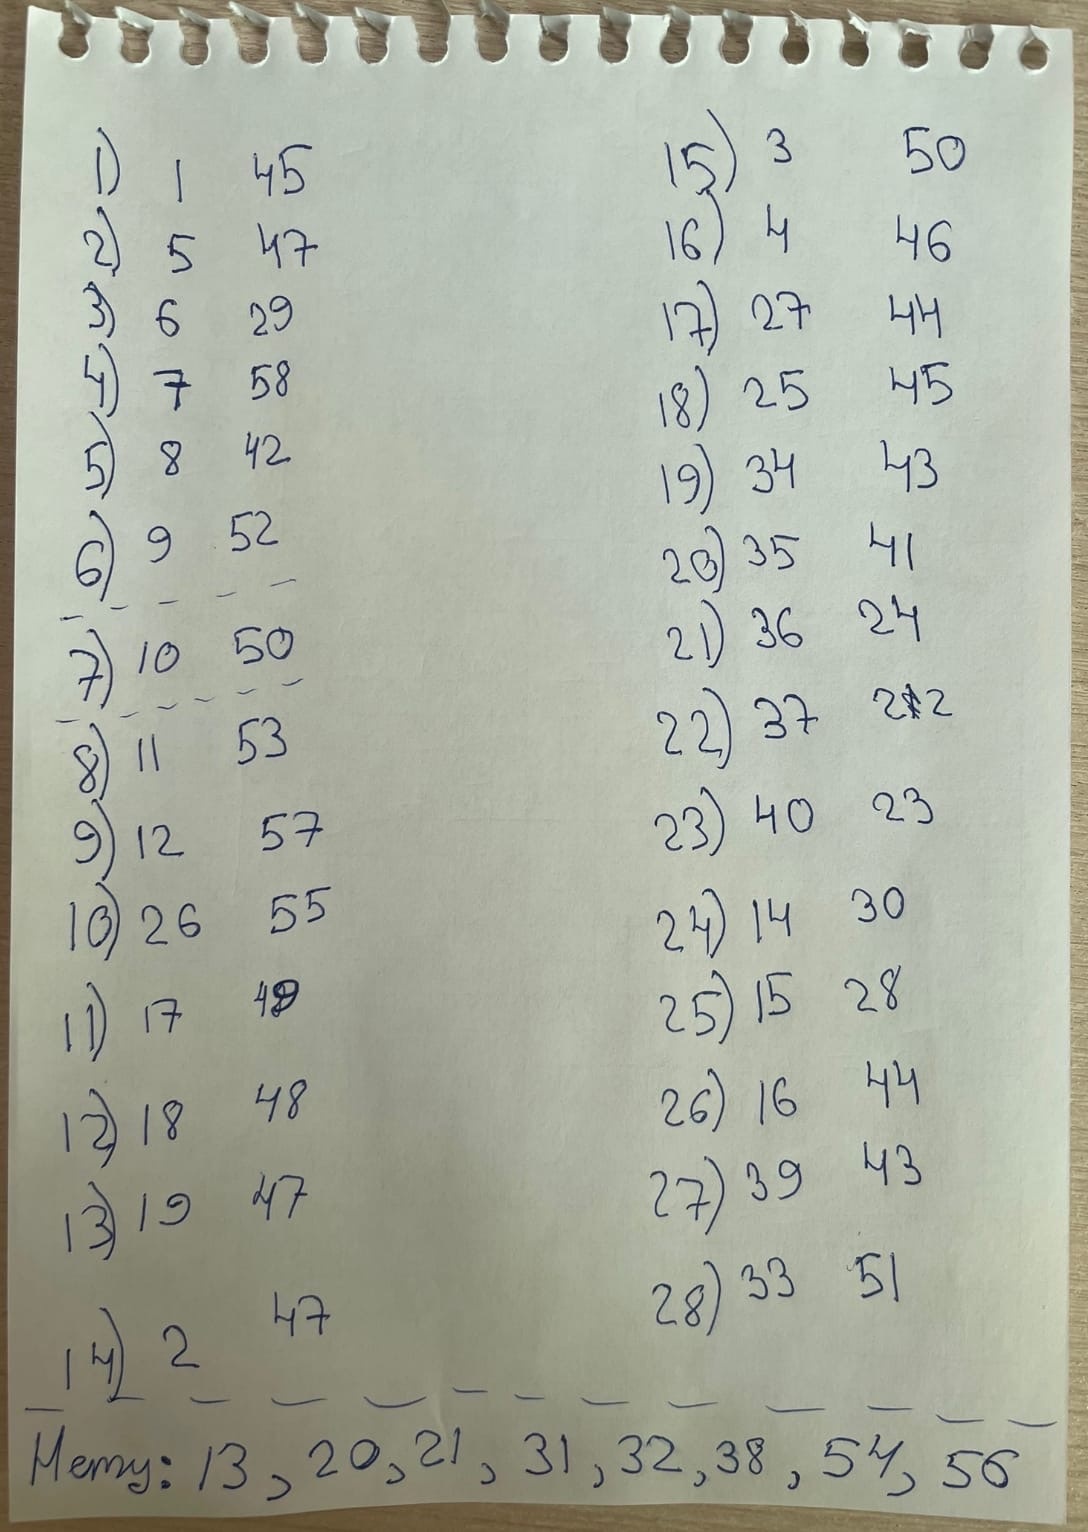 1) 1 45
2) 5 47
3) 6 29
4) 7 58
5) 8 42
6) 9 52
7) 10 50
8) 11 53
9) 12 57
10) 26 55
11) 17
12) 18 48
13) 19 47
14) 2 47
15) 3 50
16) 4 46
17) 27 44
18) 25 45
19) 34 43
20) 35 41
21) 36 24
22) 37
23) 40 23
24) 14 30
25) 15 28
26) 16 44
27) 39 43
28) 33 51
Нету: 13, 20, 21, 31, 32, 38, 54, 56